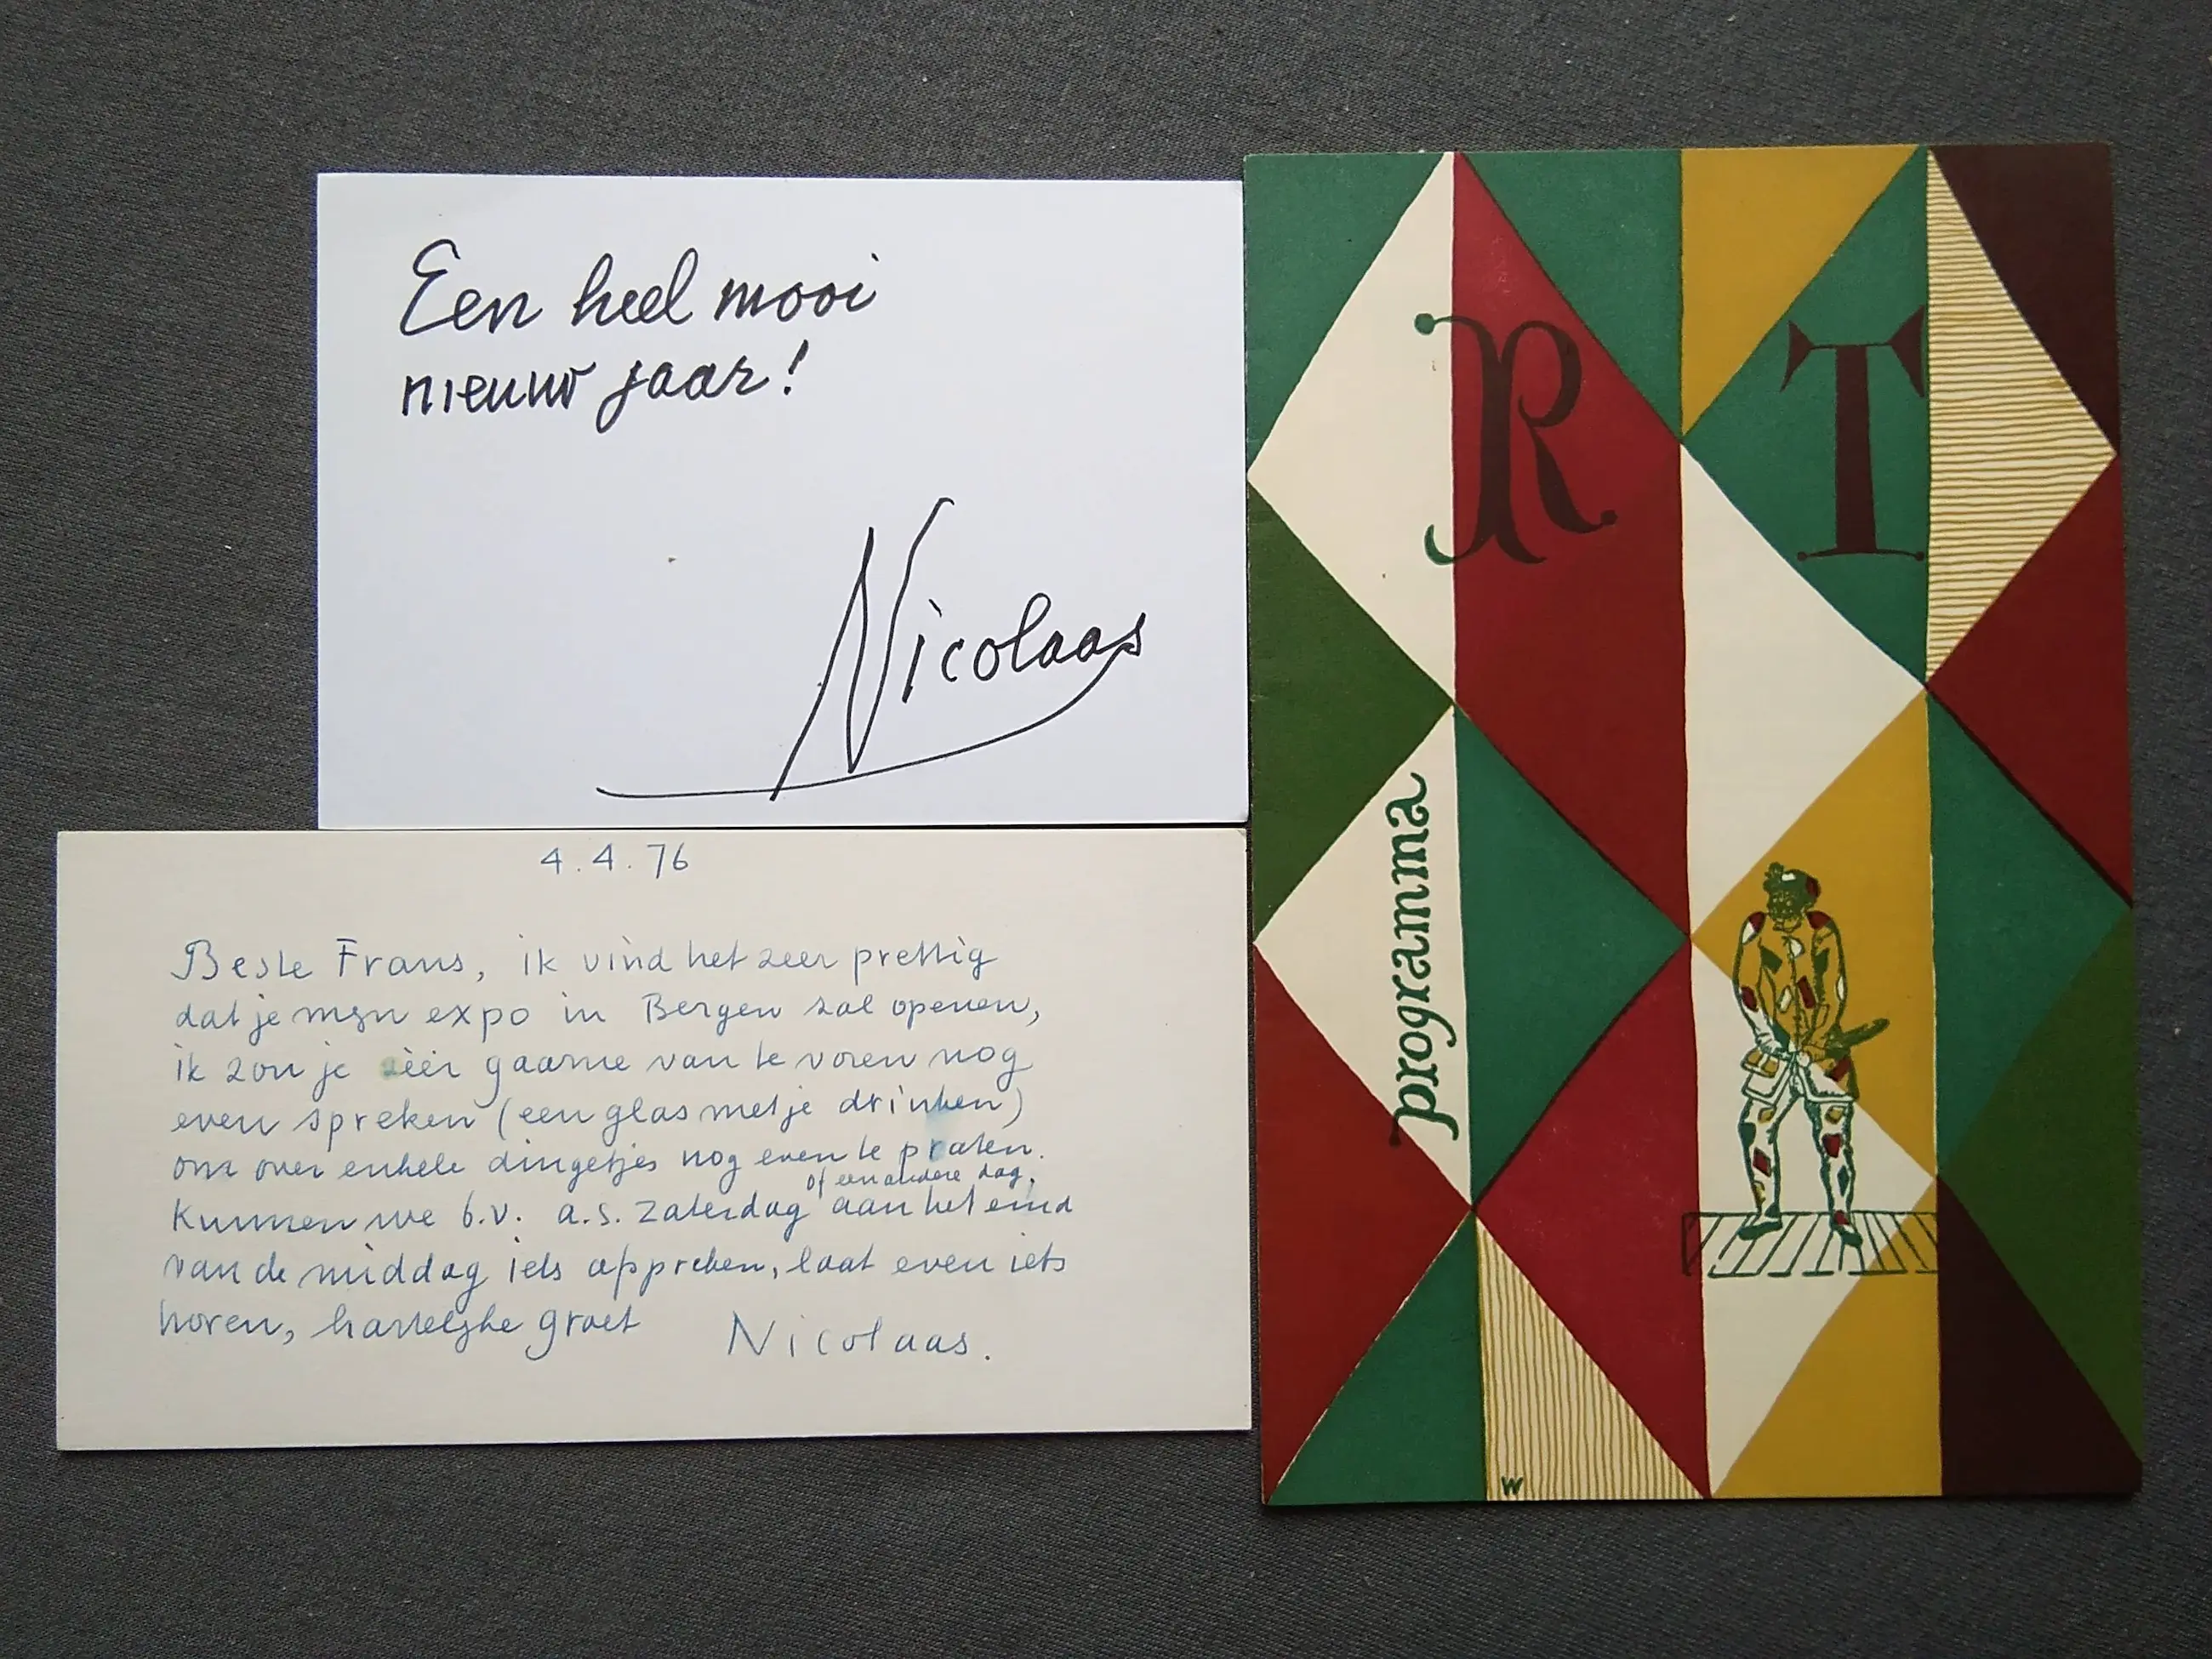 Een heel mooi
nieuw jaar!
Nicolaas
4.4.76
Beste Frans, ik vind het zeer prettig
dat je mijn expo in Bergen zal openen,
ik zou je zéér gaarne van te voren nog
even spreken (een glas met je drinken)
om over enkele dingetjes nog even te praten.
of een andere dag.
Kunnen we b.v. a.s. zaterdag aan het eind
van de middag iets afspreken, laat even iets
horen, hartelijke groet Nicolaas.
R T
programma
W